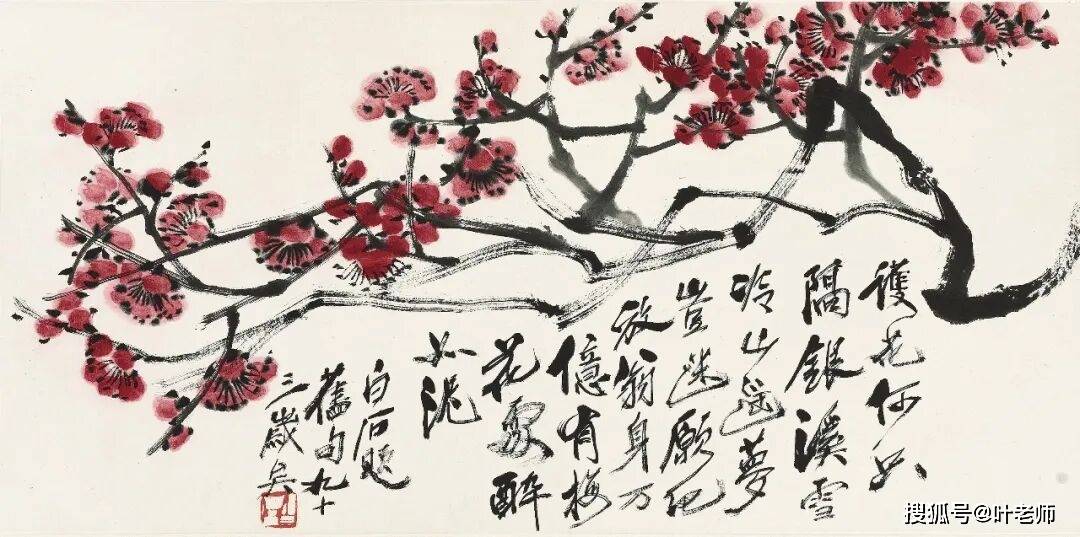 護花何只
隔銀溪雪
冷山遙夢
豈迷願化
放翁身万
億有梅
花處醉
如泥
白石題
舊句九十
三歲矣
搜狐号@叶老师